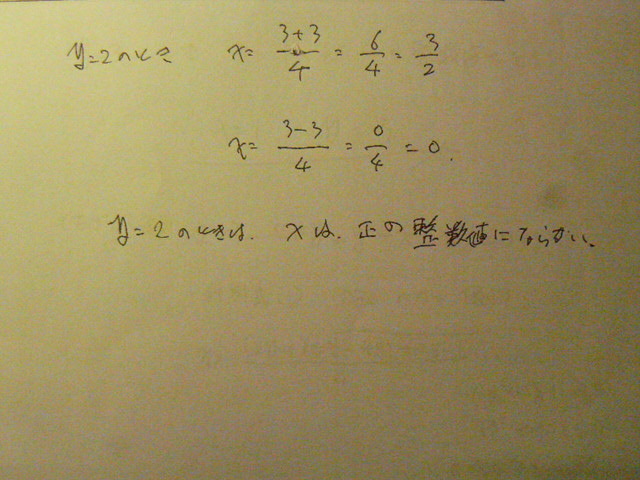 y=2のとき x= 3+3/4 = 6/4 = 3/2
x= 3-3/4 = 0/4 = 0.
y=2のときは、xは、正の整数値にならない。